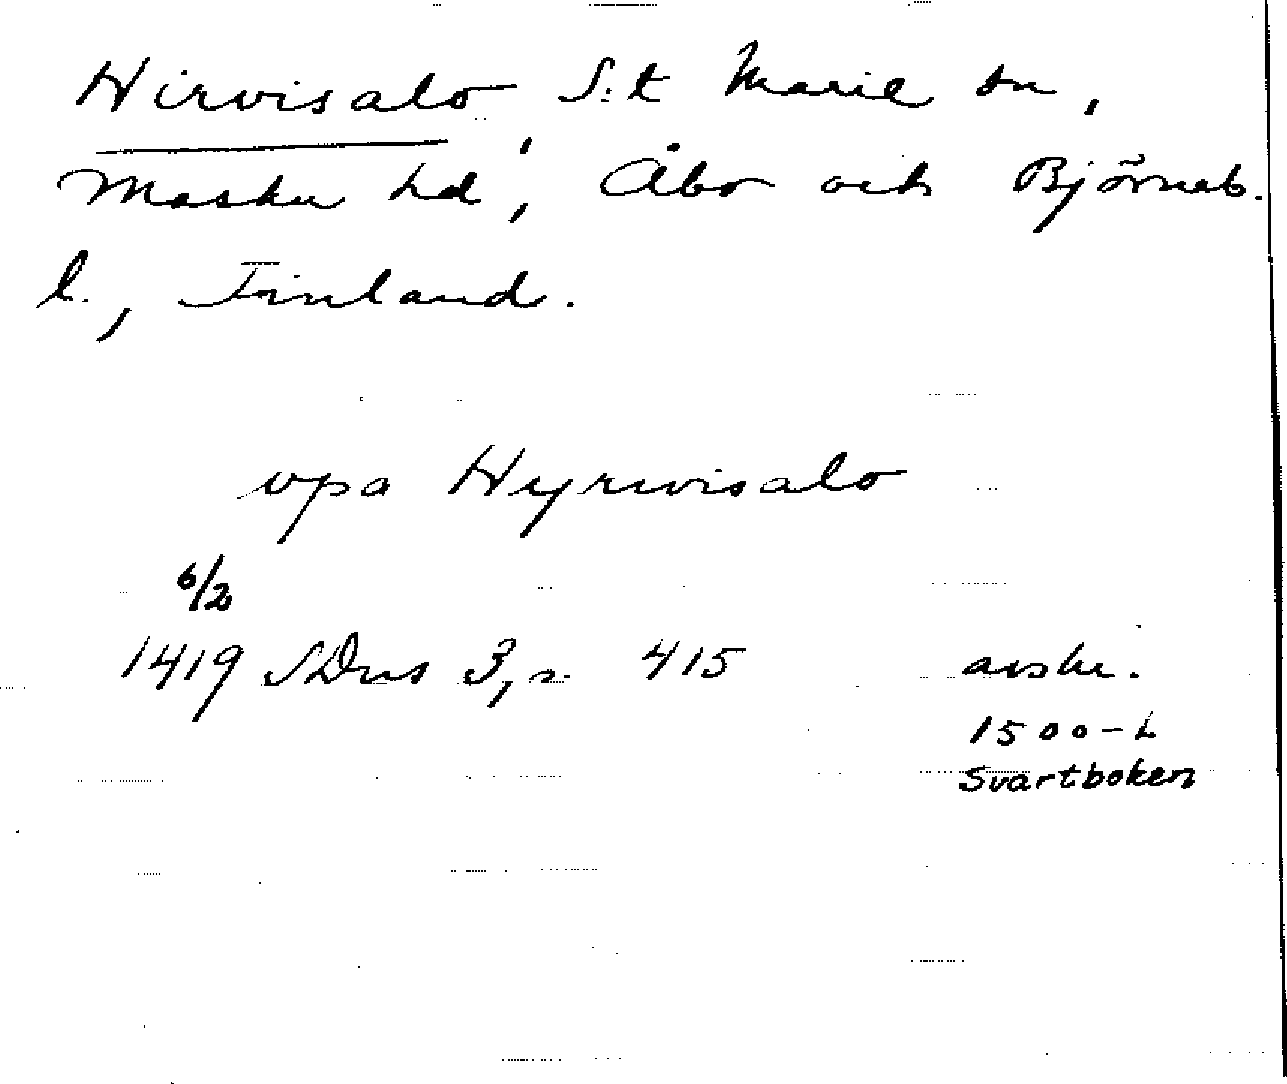 Hirvisalo, S:t Marie sn,
Masku hd, Åbo och Björneb.
l., Finland.
vpa Hyrwisalo
6/2
1419 SDns 3, s. 415 avskr.
1500-t
Svartboken